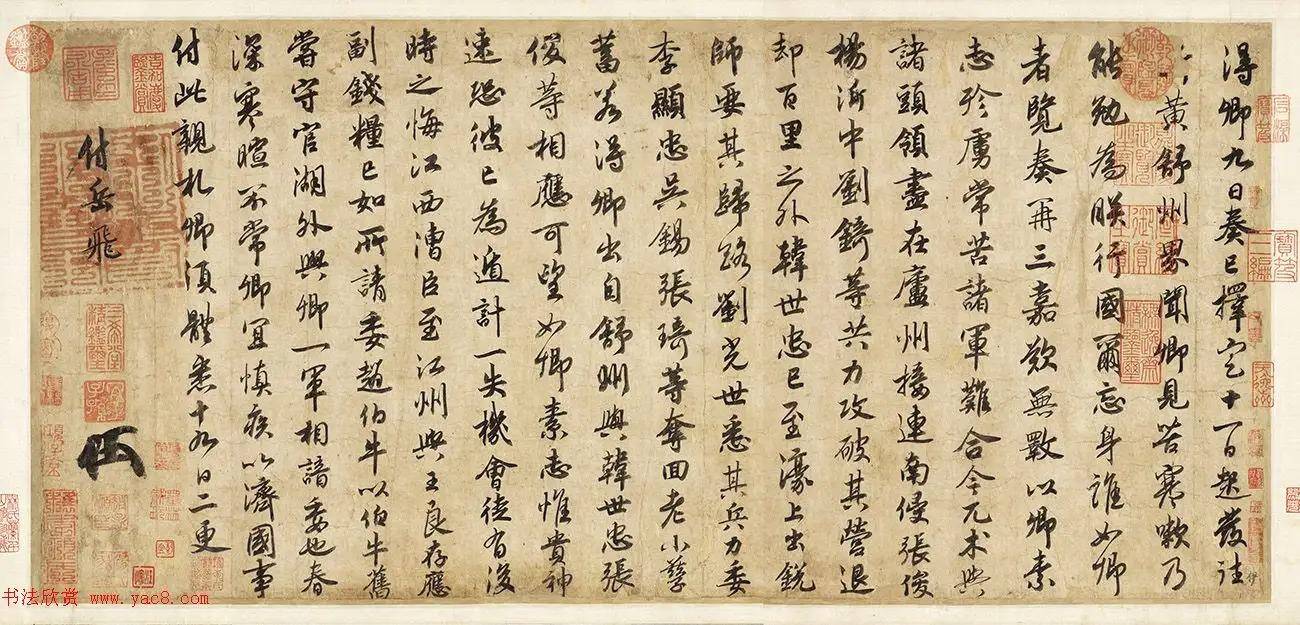 得卿九日奏已擇定十一日起發往
黃舒州界聞卿見苦寒嗽乃
能勉為朕行國爾忘身誰如卿
者覽奏再三嘉歎無斁以卿素
志殄虜常苦諸軍難合今兀朮與
諸頭領盡在廬州接連南侵張俊
楊沂中劉錡等共力攻破其營退
却百里之外韓世忠已至濠上出銳
師要其歸路劉光世悉其兵力委
李顯忠吳錫張琦等奪回老小孳
畜若得卿出自舒州與韓世忠張
俊等相應可望如卿素志惟貴神
速恐彼已為遁計一失機會徒有後
時之悔江西漕臣至江州與王良存應
副錢糧已如所請委趙伯牛以伯牛舊
嘗守官湖外與卿一軍相諳委也春
深寒暄不常卿宜慎疾以濟國事
付此親札卿須體悉十九日二更
付岳飛
书法欣赏 www.yac8.com